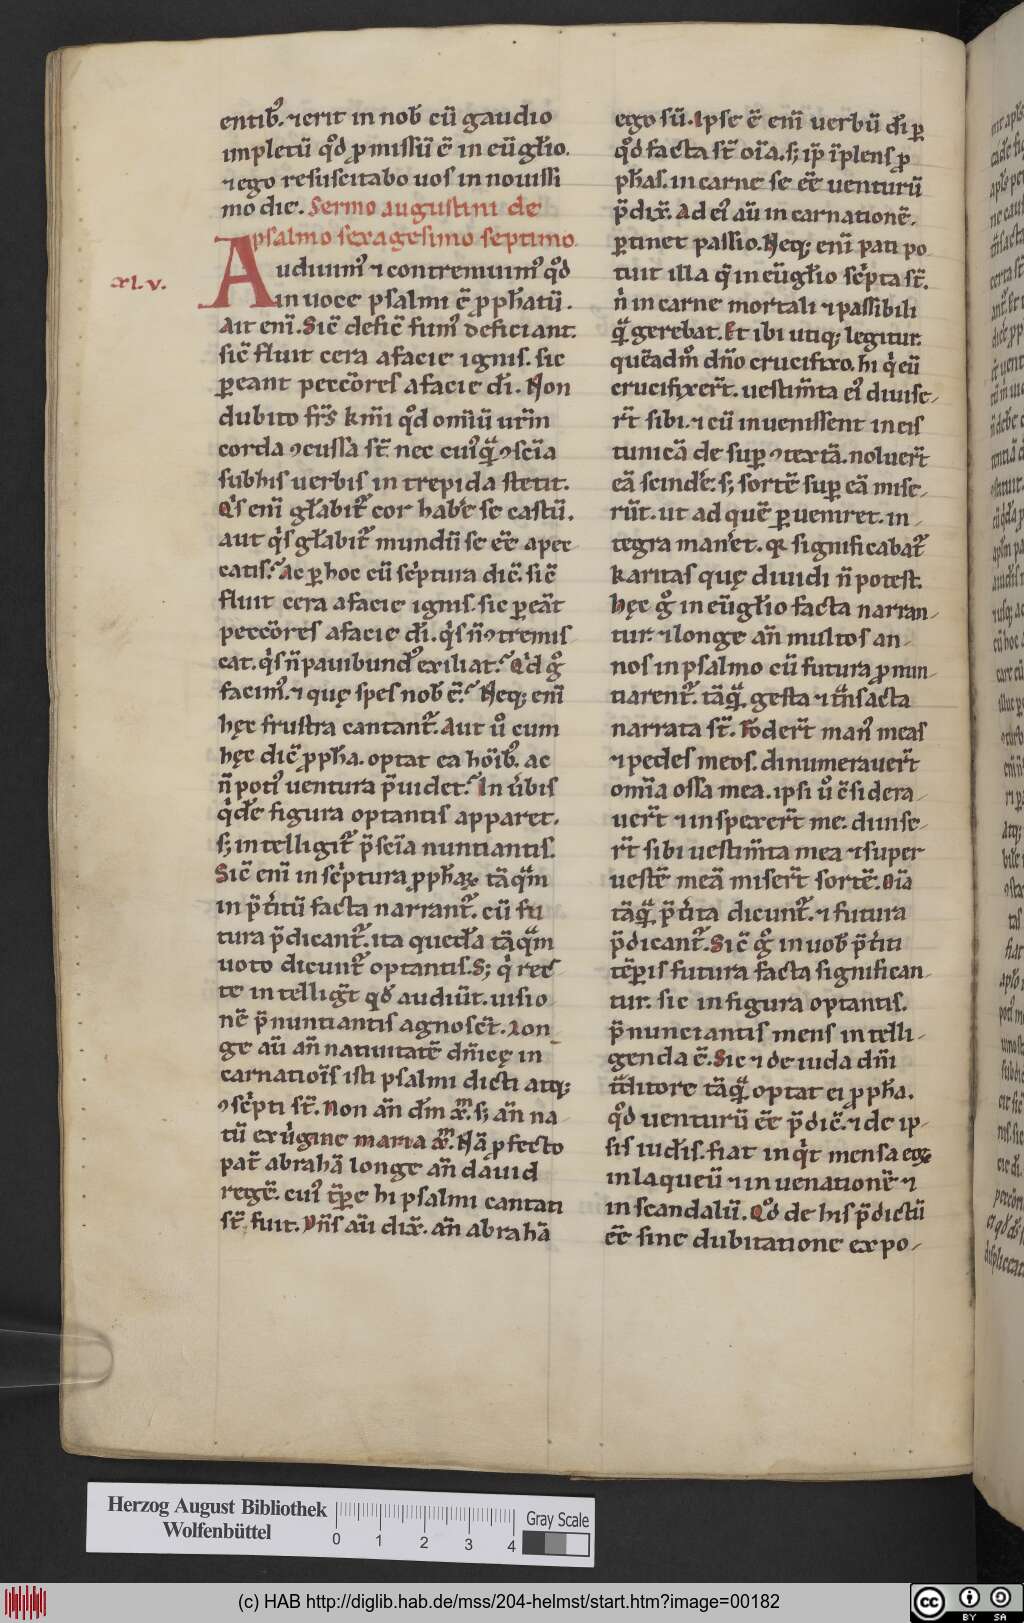 entib᷒. ⁊ erit in nob̄ cū gaudio
impletū qď ꝓmissū ē in euḡłio.
⁊ ego resuscitabo uos in nouissi
mo die. Sermo augustini de
psalmo sexagesimo septimo.
xl.v.
Audiuim᷒ ⁊ contremuim᷒ qď
in uoce psalmi ē ꝓpħatū.
Ait enī. Sic̄ defic̄ fum᷒ deficiant.
sic̄ fluit cera a facie ignis. sic
ꝑeant peccōres a facie dī. Non
dubito frs̄ kmī qď omiū urm̄
corda ꝯcussa st̄ nec cui᷒q̄ ꝯscīa
sub his uerbis intrepida stetit.
Qͥs enī głabit᷑ cor habe᷑ se castū.
aut qͥs głabit᷑ mundū se eē a pec
catis. Ac ꝑ hoc cū scͥptura dic̄. sic̄
fluit cera a facie ignis. sic ꝑeāt
peccōres a facie dī. qͥs n̄ ꝯtremis
cat. qͥs n̄ pauibund᷒ exiliat. Qͥd gͦ
facim᷒. ⁊ quę spes nob̄ ē. Neq; enī
hęc frustra cantant᷑. Aut uͦ cum
hęc dic̄ ꝓpħa. optat ea hoīb᷒. ac
n̄ poti᷒ uentura p̄uidet. In uͥbis
qͥdē figura optantis apparet.
s; intelligit᷑ p̄scīa nuntiantis.
Sic̄ enī in scͥptura ꝓpħaꝝ tāqͣm
in p̄tͥitū facta narrant᷑. cū fu
tura p̄dicant᷑. ita quedā tāqͣm
uoto dicunt᷑ optantis. S; qͥ rec
te intelligit̄ qď audiūt. uisio
nē p̄nuntiantis agnosct̄. Lon
ge aū an̄ natiuitatē dn̄icę in
carnatiōis isti psalmi dicti atq;
ꝯscͥpti st̄. Non an̄ dm̄ xp̄m. s; an̄ na
tū ex uͥgine maria xp̄m. Nā ꝓfecto
pat̄ abrahā longe an̄ dauid
regē. cui᷒ tp̄re hi psalmi cantati
st̄. fuit. Dn̄s aū dix̄. an̄ abrahā
ego sū. Ipse ē enī uerbū dī ꝑ
qď facta st̄ oīa. s; ip̄ īplens ꝓ
pħas. in carne se eē uenturū
p̄dix̄. Ad ei᷒ aū incarnationē.
ꝑtinet passio. Neq; enī pati po
tuit illa q̄ in euḡłio scͥpta st̄.
nͥ in carne mortali ⁊ passibili
qͣ̄ gerebat. Et ibi utiq; legitur.
quēadm̄ dn̄o crucifixo. hi qͥ eū
crucifixer̄t. uestim̄ta ei᷒ diuise-
rt̄ sibi. ⁊ cū inuenissent in eis
tunicā desuꝑ ꝯtextā. noluert̄
eā scindē. s; sortē suꝑ eā mise-
rūt. ut ad quē ꝑueniret. in-
tegra man᷑et. qꝛ significabat᷑
karitas quę diuidi n̄ potest.
Hęc gͦ in euḡłio facta narran-
tur. ⁊ longe an̄ multos an-
nos in psalmo cū futura ꝓnun
tiarent᷑. tāqͣ̄ gesta ⁊ tͣnsacta
narrata st̄. Fodert̄ man᷒ meas
⁊ pedes meos. dinumerauert̄
omīa ossa mea. ipsi uͦ ꝯsidera-
uert̄ ⁊ inspexert̄ me. diuise-
rt̄ sibi uestim̄ta mea ⁊ super
uestē meā misert̄ sortē. Oīa
tāqͣ̄ p̄tͥita dicunt᷑. ⁊ futura
p̄dicant᷑. Sic̄ gͦ in uob̄ p̄tͥiti
tēꝑis futura facta significan-
tur. sic in figura optantis.
p̄nunciantis mens intelli-
genda ē. Sic ⁊ de iuda dn̄i
tͣditore tāqͣ̄ optat ei ꝓpħa.
qď uenturū eē p̄dic̄. ⁊ de ip-
sis iudis. fiat inqͥt mensa eoꝝ
in laqueū ⁊ in uenationē ⁊
in scandalū. Qď de his p̄dictū
eē sine dubitatione expo-
Herzog August Bibliothek
Wolfenbüttel
0 1 2 3 4
Gray Scale
(c) HAB http://diglib.hab.de/mss/204-helmst/start.htm?image=00182
cc BY SA